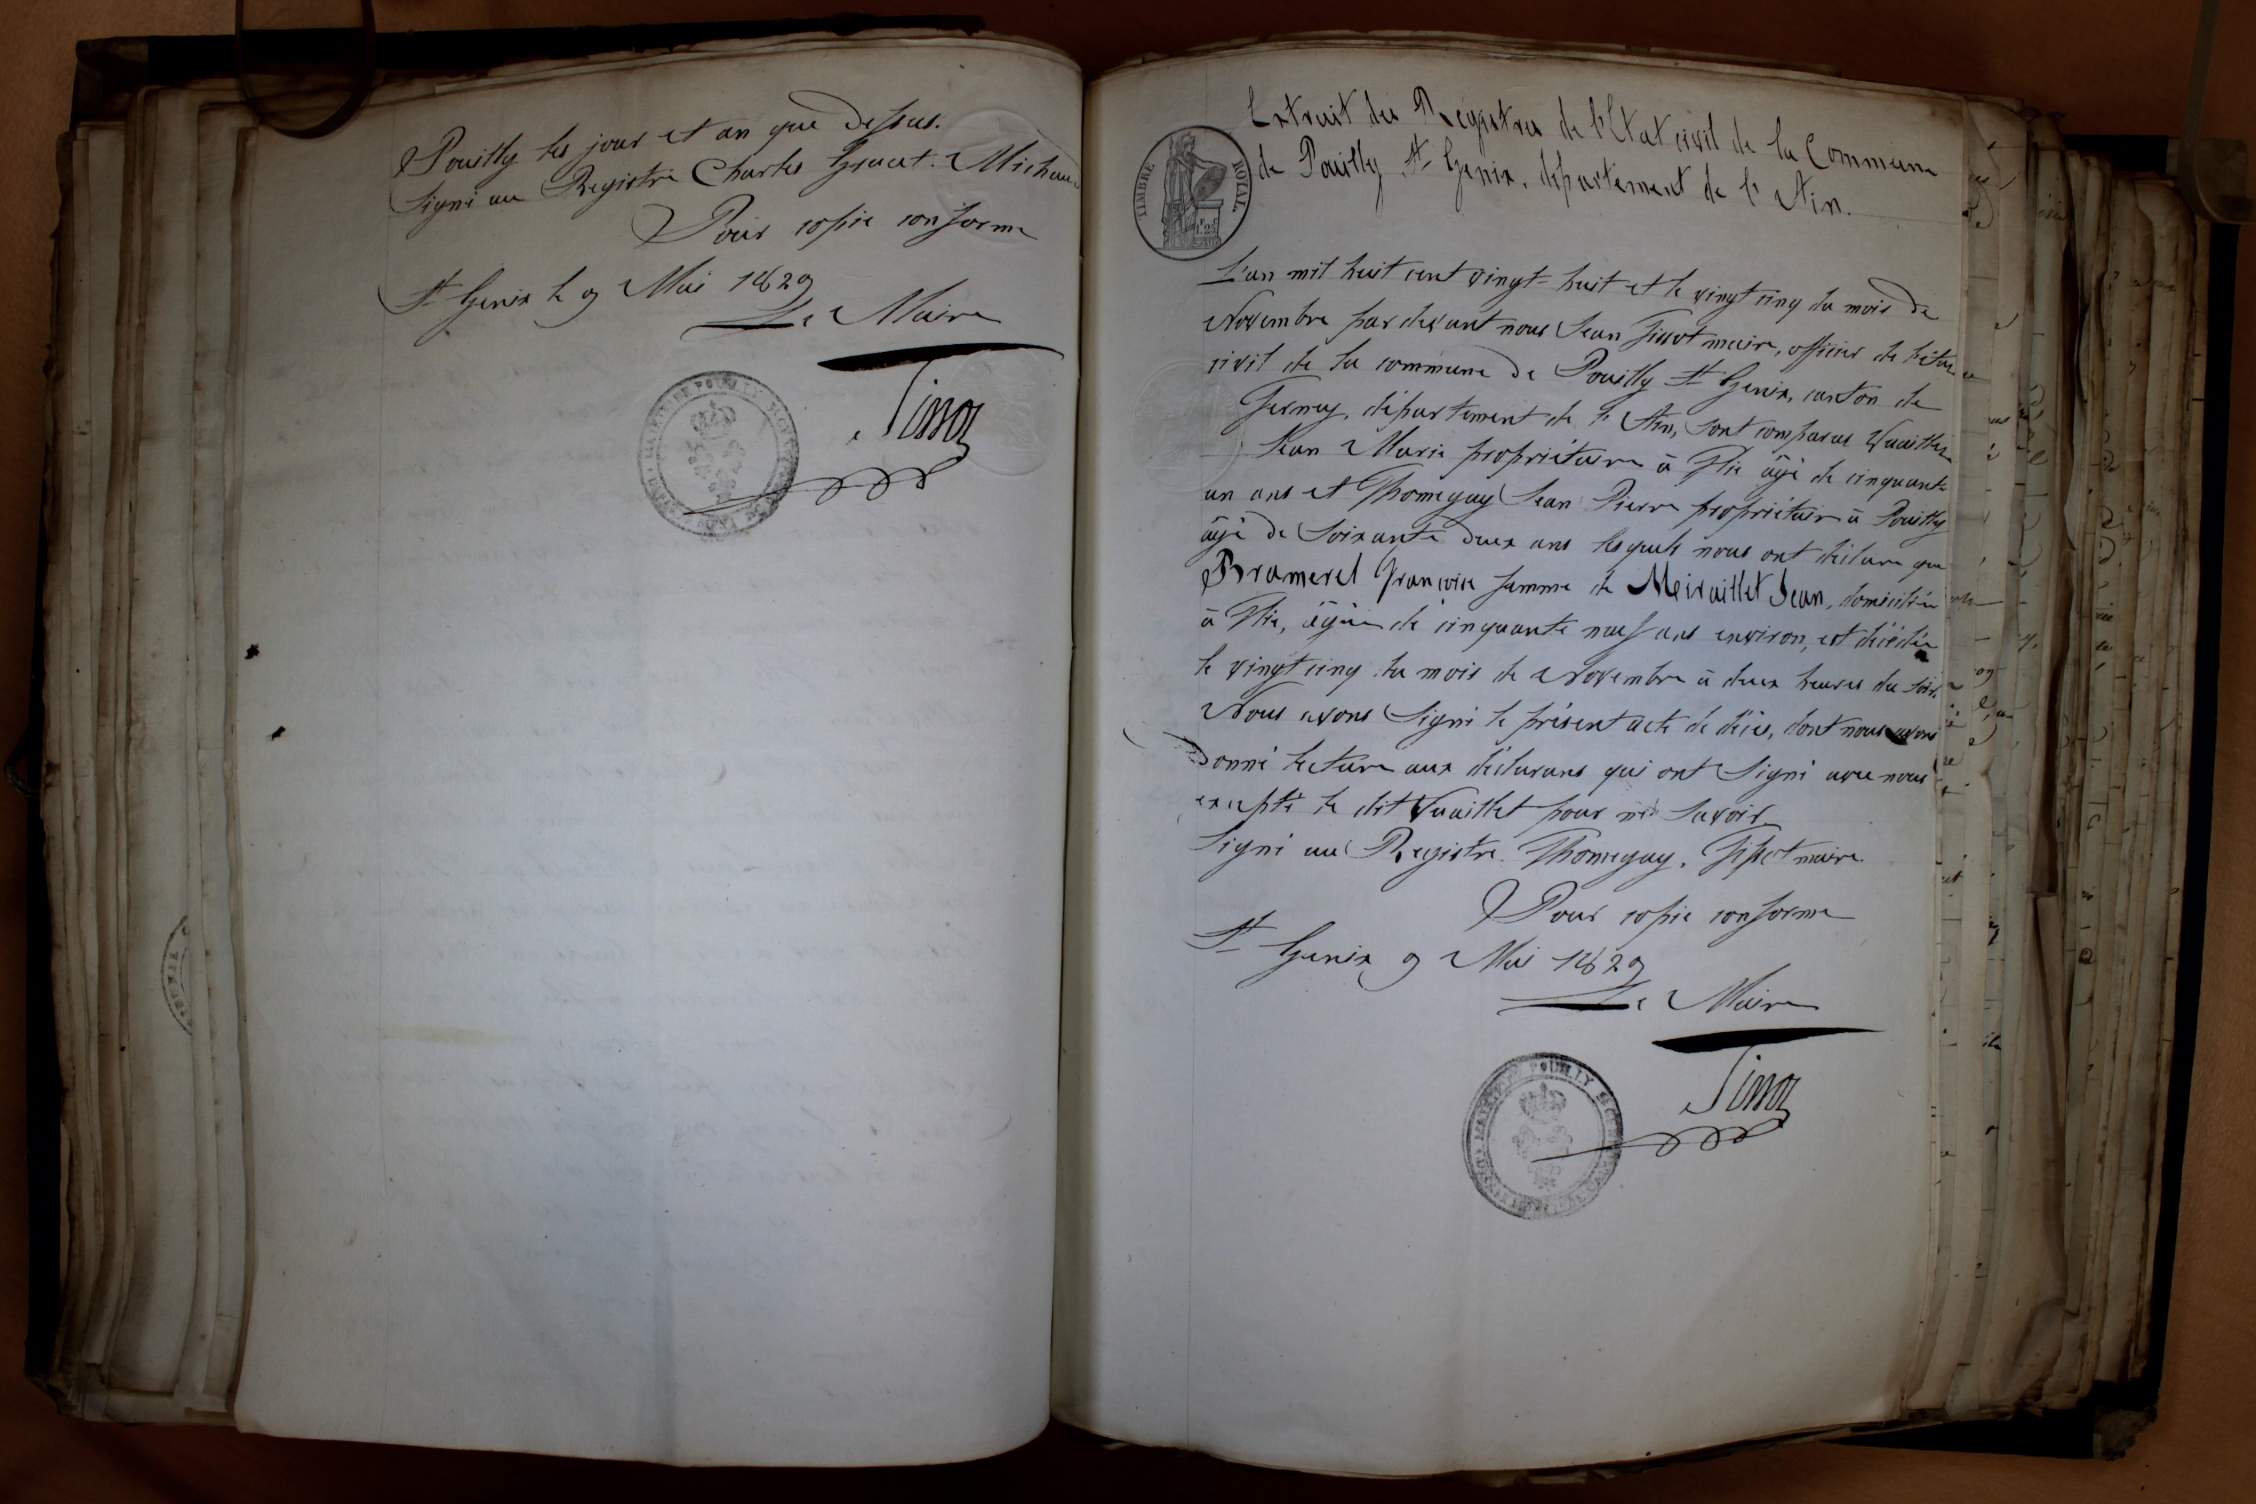 Pouilly les jour et an que dessus.
Signé au Registre Charles Gruet. Michaud
Pour copie conforme
St Genix le 9 Mai 1829
Le Maire
Tissot
MAIRIE DE POUILLY
Extrait des Registres de l'Etat civil de la Commune
de Pouilly St Genix, département de l'Ain.
TIMBRE ROYAL
L'an mil huit cent vingt-huit et le vingt cinq du mois de
Novembre pardevant nous Jean Tissot maire, officier de l'état
civil de la commune de Pouilly St Genix, canton de
Ferney, département de l'Ain, sont comparus Vuaillet
Jean Marie propriétaire à Flie âgé de cinquante
un ans et Thomegay Jean Pierre propriétaire à Pouilly
âgé de Soixante deux ans lesquels nous ont déclaré que
Bramerel Françoise femme de Meivaillet Jean, domiciliée
à Flie, âgée de cinquante neuf ans environ, est décédée
le vingt cinq du mois de Novembre à deux heures du soir.
Nous avons Signé le présent acte de décès, dont nous avons
donné lecture aux déclarans qui ont Signé avec nous
excepté le dit Vuaillet pour ne savoir
Signé au Registre Thomegay. Tissot maire
Pour copie conforme
St Genix 9 Mai 1829
Le Maire
Tissot
MAIRIE DE POUILLY